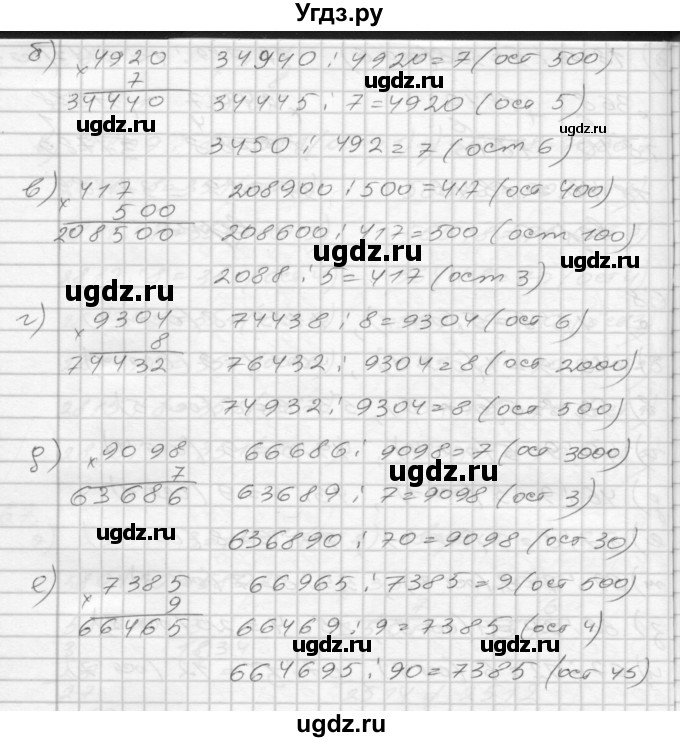 Угдз.ру
б) × 4920 34940 : 4920 = 7 (ост 500)
7 ugdz.ru
34440 34445 : 7 = 4920 (ост 5)
ugdz.ru ugdz.ru
3450 : 492 = 7 (ост 6)
в) × 417 208900 : 500 = 417 (ост 400)
500
208500 208600 : 417 = 500 (ост 100)
ugdz.ru ugdz.ru
2088 : 5 = 417 (ост 3)
ugdz.ru
г) × 9304 74438 : 8 = 9304 (ост 6)
8
74432 76432 : 9304 = 8 (ост 2000)
ugdz.ru ugdz.ru ugdz.ru
74932 : 9304 = 8 (ост 500)
д) × 9098 66686 : 9098 = 7 (ост 3000)
7 ugdz.ru
63686 63689 : 7 = 9098 (ост 3)
ugdz.ru ugdz.ru
636890 : 70 = 9098 (ост 30)
е) × 7385 66965 : 7385 = 9 (ост 500)
9
66465 66469 : 9 = 7385 (ост 4)
ugdz.ru ugdz.ru
664695 : 90 = 7385 (ост 45)
ugdz.ru
ugdz.ru